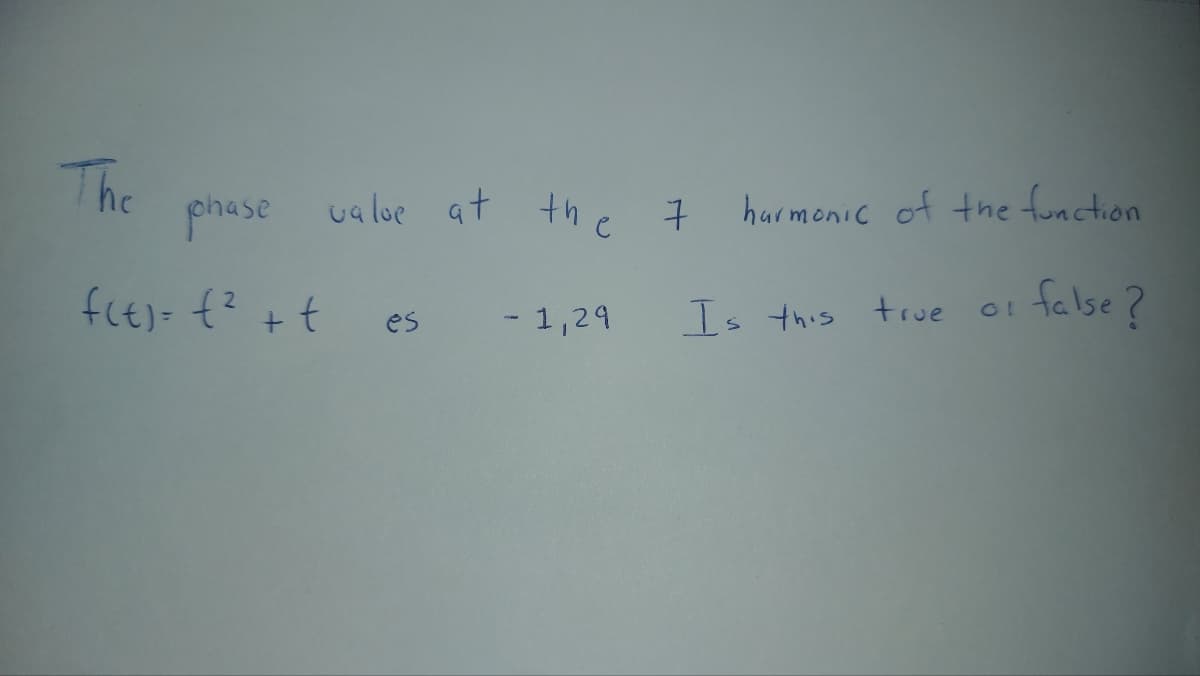 The phase value at the 7 harmonic of the function
f(t)= t² + t es - 1,29 Is this true or false?